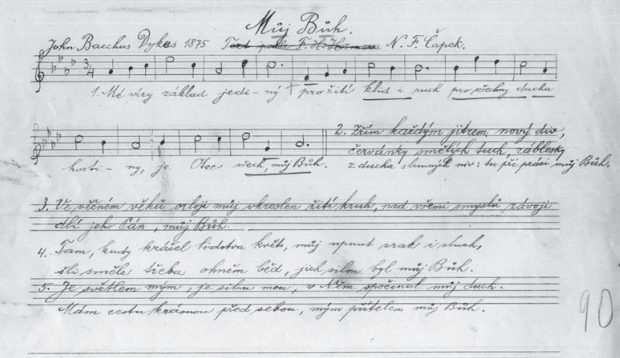 Můj Bůh.
John Bacchus Dykes 1875 Text podle F. H. N. F. Čapek.
3/4
1. Mé víry základ jediný pro žití kluk i ruch pro všechny ducha
hostiny, je Otec všech, můj Bůh.
2. Zřím každým jitrem nový div,
červánky smělých tuch, záblesky
z ducha slunných niv: tu při práci můj Bůh.
3. Ve věčném věků orloji můj vkreslen žití kruh, nad všemi smyslů závoji
dlí jeho Pán, můj Bůh.
4. Tam, kudy kráčel lidstva květ, můj upnut zrak i sluch,
šli směle třeba ohněm běd, jich silou byl můj Bůh.
5. Je světlem mým, je silou mou, v Něm spočinul můj duch.
Mám cestu krásnou před sebou, mým přítelem můj Bůh.
90